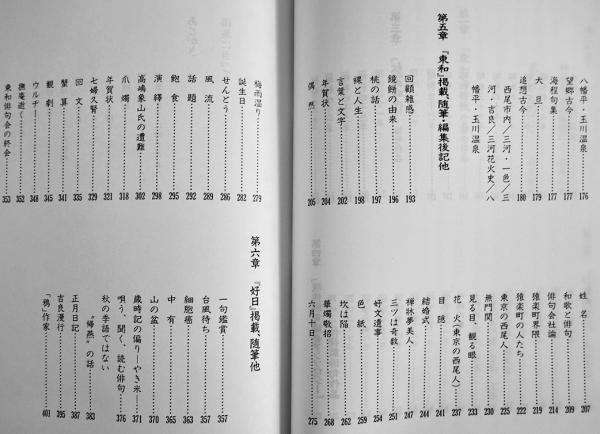 八幡平・玉川温泉 176
望郷古今 177
海程句集 177
大旦 179
追想古今 180
西尾市内/三河・一色/三
河・吉良/三河花火史/八
幡平・玉川温泉
第五章 『東和』掲載、随筆・編集後記他
回顧雑感 193
饒餅の由来 196
桃の話 197
裸と人生 198
言葉と文字 202
年賀状 204
偶然 205
姓名 207
和歌と俳句 209
俳句会社論 214
猿楽町界隈 219
猿楽町の人たち 222
東京の西尾人 225
無門関 230
見る目、観る眼 233
花火(東京の西尾人) 237
目隠 241
結婚式 244
禅林夢美人 247
三ツは奇数 251
好文遺事 254
色紙 259
坎は陥 262
華燭敬招 268
六月十日 275
梅雨湿り 279
誕生日 282
せんとう 286
風流 289
話題 292
飽食 295
演繹 298
高嶋象山氏の遭難 302
爪燭 318
年賀状 321
七婦久賢 329
回文 335
蟹算 341
観劇 345
ウルヂー 348
撫庵逝く 352
東和俳句会の終会 353
第六章 『好日』掲載、随筆他
一句鑑賞 357
台風待ち 357
細胞癌 363
中有 365
山の盆 370
歳時記の偏り―やき米― 371
唄う、聞く、読む俳句 376
秋の季語ではない
"帰燕"の話 383
正月日記 387
吉良漫行 395
「鴉」作家 401